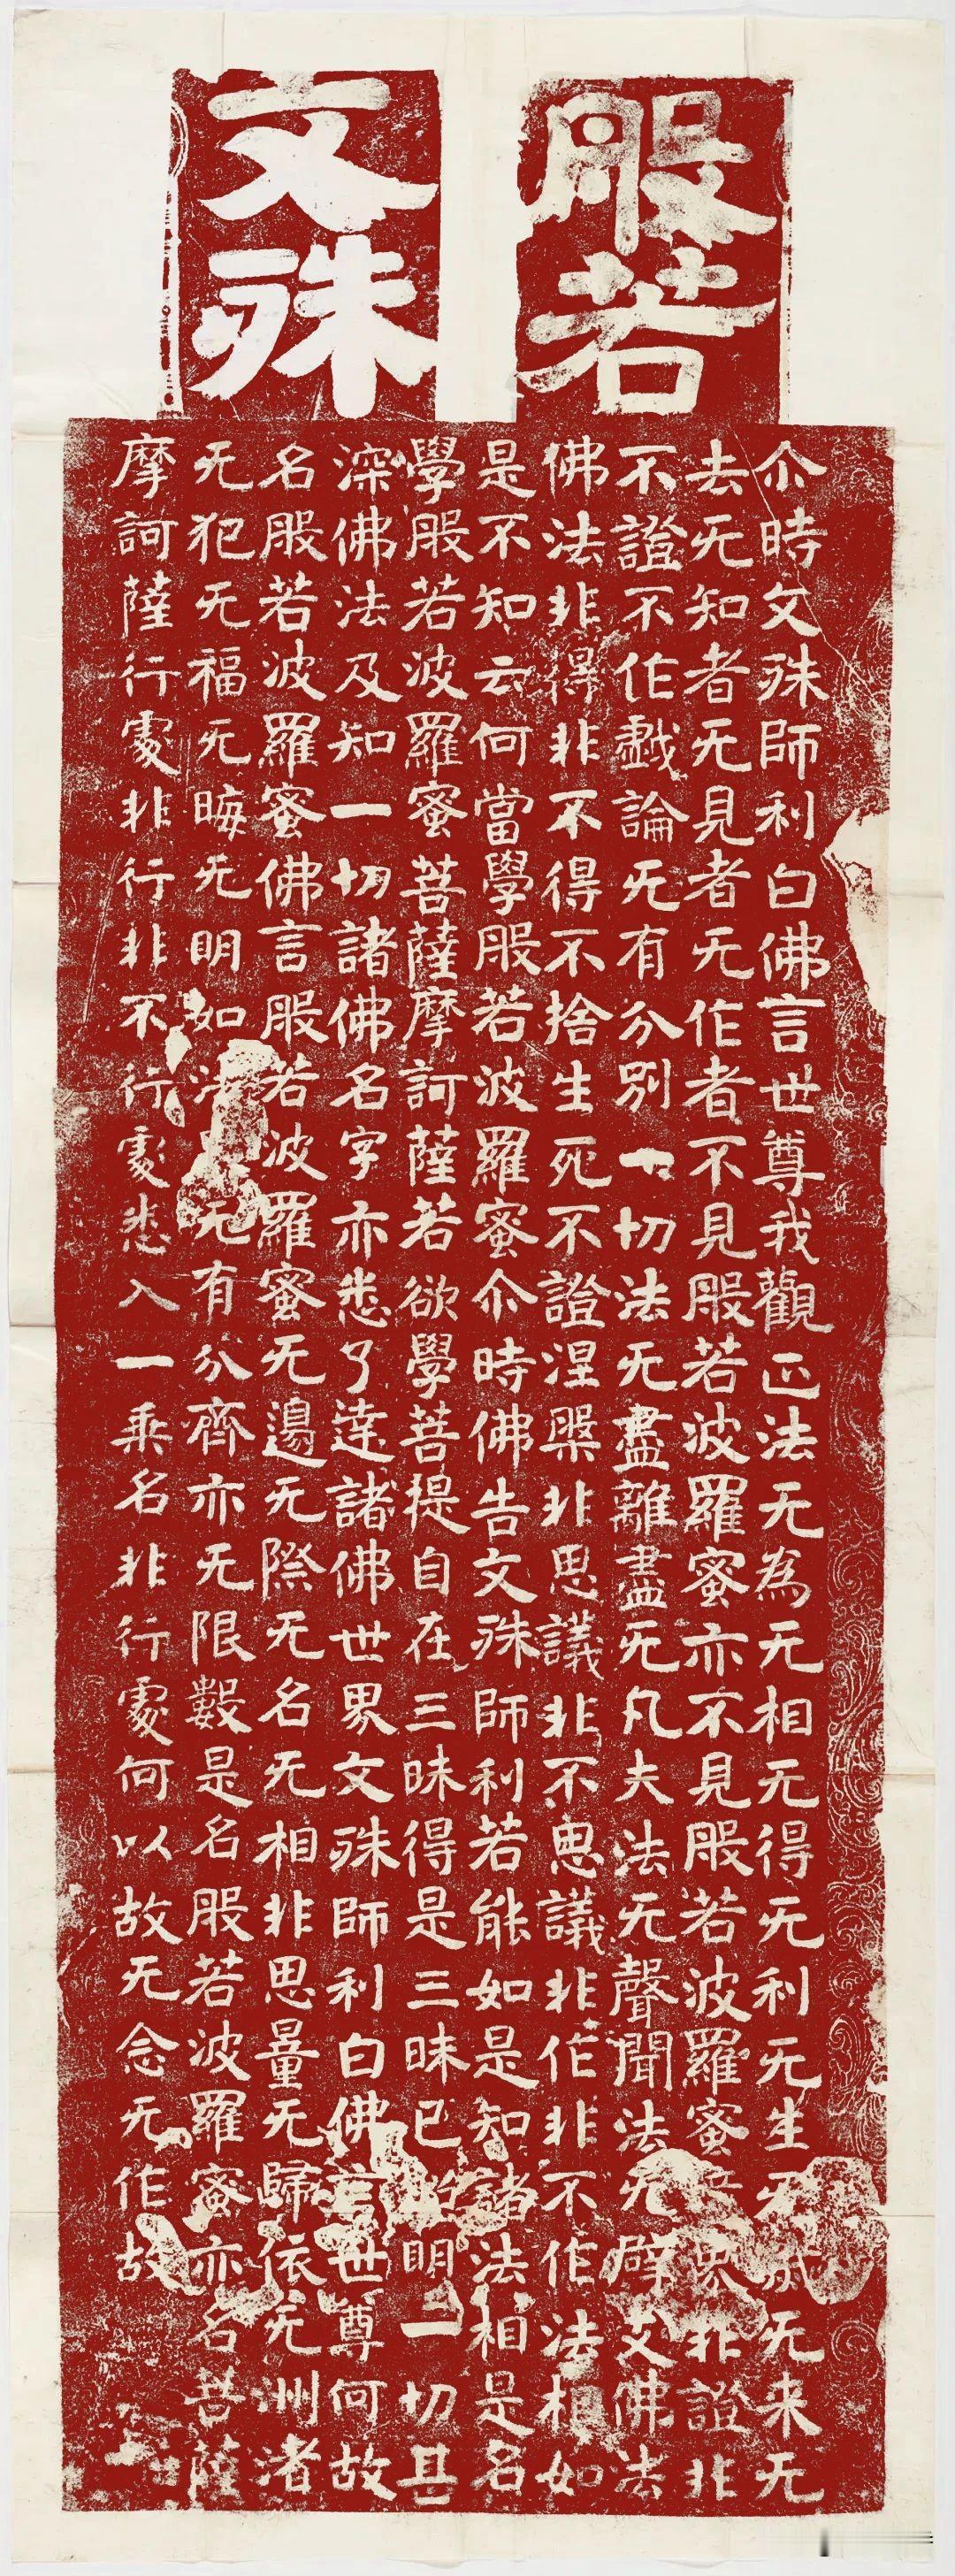 般若
文殊
尒時文殊師利白佛言世尊我觀正法无為无相无得无利无生无滅无来无
去无知者无見者无作者不見般若波羅蜜亦不見般若波羅蜜界非證非
不證不作戲論无有分別一切法无盡離盡无凡夫法无聲聞法无辟支佛法
佛法非得非不得不捨生死不證涅槃非思議非不思議非作非不作法相如
是不知云何當學般若波羅蜜尒時佛告文殊師利若能如是知諸法相是名
學般若波羅蜜菩薩摩訶薩若欲學菩提自在三昧得是三昧已照明一切甚
深佛法及知一切諸佛名字亦悉了達諸佛世界文殊師利白佛言世尊何故
名般若波羅蜜佛言般若波羅蜜无邊无際无名无相非思量无歸依无洲渚
无犯无福无晦无明如法无有分齊亦无限數是名般若波羅蜜亦名菩薩
摩訶薩行處非行非不行處悉入一乘名非行處何以故无念无作故